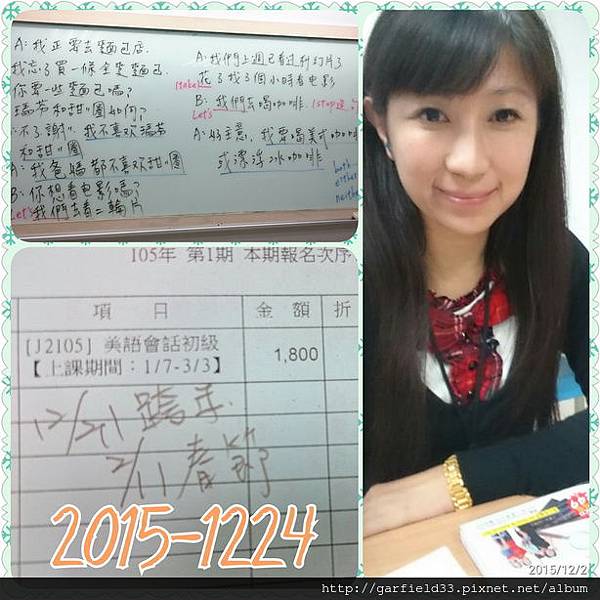 A:我正要去麵包店.
我忘了買一條全麥麵包.
你要一些麵包嗎?
瑞芬和甜"圈如何?
不了謝". 我不喜欢瑞芬
和甜"圈
A:我爸媽都不喜欢甜"圈
B:你想看电影嗎?
Let's 我們去看二輪片
A:我們上週已看过
花了我3個小時看电影
(take)
B:我們去喝咖啡.
Let's
A:好主意,我要喝美式咖啡
或漂浮冰咖啡
both
either
neither
105年 第1期 本期報名次序
項 目 金 額 折
[J2105] 美語會話初級 1,800
【上課期間:1/7-3/3】
12/31 跨年
2/11 春節
2015-1224
2015/12/2
http://garfield33.pixnet.net/album